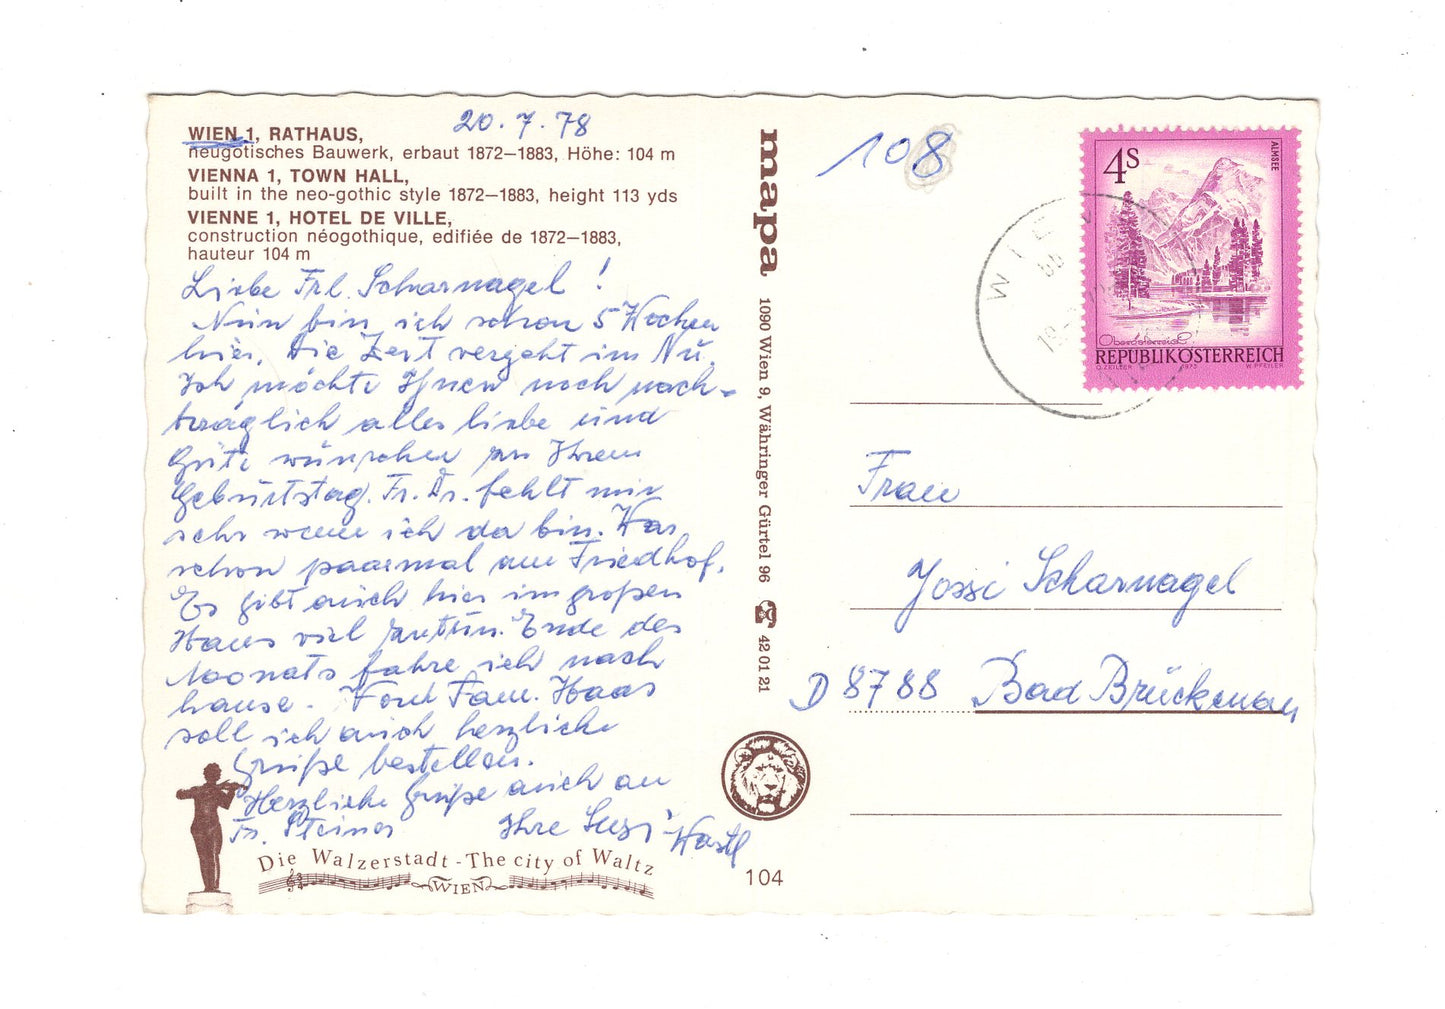 WIEN 1, RATHAUS,
neugotisches Bauwerk, erbaut 1872–1883, Höhe: 104 m
VIENNA 1, TOWN HALL,
built in the neo-gothic style 1872–1883, height 113 yds
VIENNE 1, HOTEL DE VILLE,
construction néogothique, edifiée de 1872–1883,
hauteur 104 m
20.7.78
Liebe Frl. Scharnagel!
Nun bin ich schon 5 Wochen
hier. Die Zeit vergeht im Nu.
Ich möchte Ihnen noch nach-
träglich alles liebe und
Gute wünschen zu Ihrem
Geburtstag. Fr. Dr. fehlt mir
sehr wenn ich da bin. War
schon paarmal am Friedhof.
Es gibt auch hier im großen
Haus viel zutun. Ende des
Moonats fahre ich nach
hause. Von Fam. Haas
soll ich auch herzliche
Grüße bestellen.
Herzliche Grüße auch an
Fr. Steiner Ihre Susi Wastl
Die Walzerstadt - The city of Waltz
WIEN
mapa
1090 Wien 9, Währinger Gürtel 96 42 01 21
104
108
4S
ALMSEE
Oberösterreich
REPUBLIK ÖSTERREICH
O. ZEILLER 1973 W. PFEILER
WIEN
Frau
Jossi Scharnagel
D 8788 Bad Brückenau